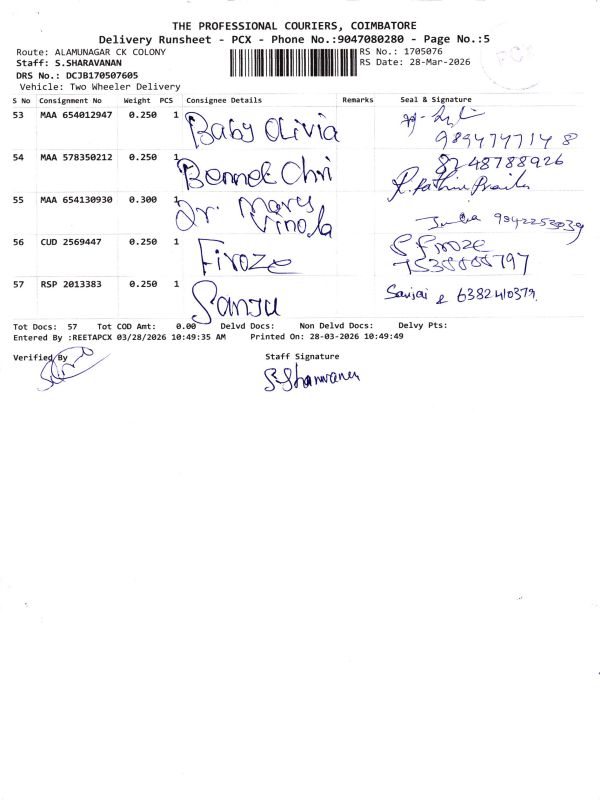 THE PROFESSIONAL COURIERS, COIMBATORE
Delivery Runsheet - PCX - Phone No.:9047080280 - Page No.:5
Route: ALAMUNAGAR CK COLONY RS No.: 1705076
Staff: S.SHARAVANAN RS Date: 28-Mar-2026
DRS No.: DCJB170507605
Vehicle: Two Wheeler Delivery
PCX
S No Consignment No Weight PCS Consignee Details Remarks Seal & Signature
53 MAA 654012947 0.250 1 Baby Olivia
9894777148
54 MAA 578350212 0.250 1 Bennet Chri 8248788926
55 MAA 654130930 0.300 1 Dr. Mary
Vinola 9842253039
56 CUD 2569447 0.250 1 Firoze S. Firoze
57 RSP 2013383 0.250 1 Sanju Sanjai 6382410379
Tot Docs: 57 Tot COD Amt: 0.00 Delvd Docs: Non Delvd Docs: Delvy Pts:
Entered By :REETAPCX 03/28/2026 10:49:35 AM Printed On: 28-03-2026 10:49:49
Verified By Staff Signature
S. Sharavanan